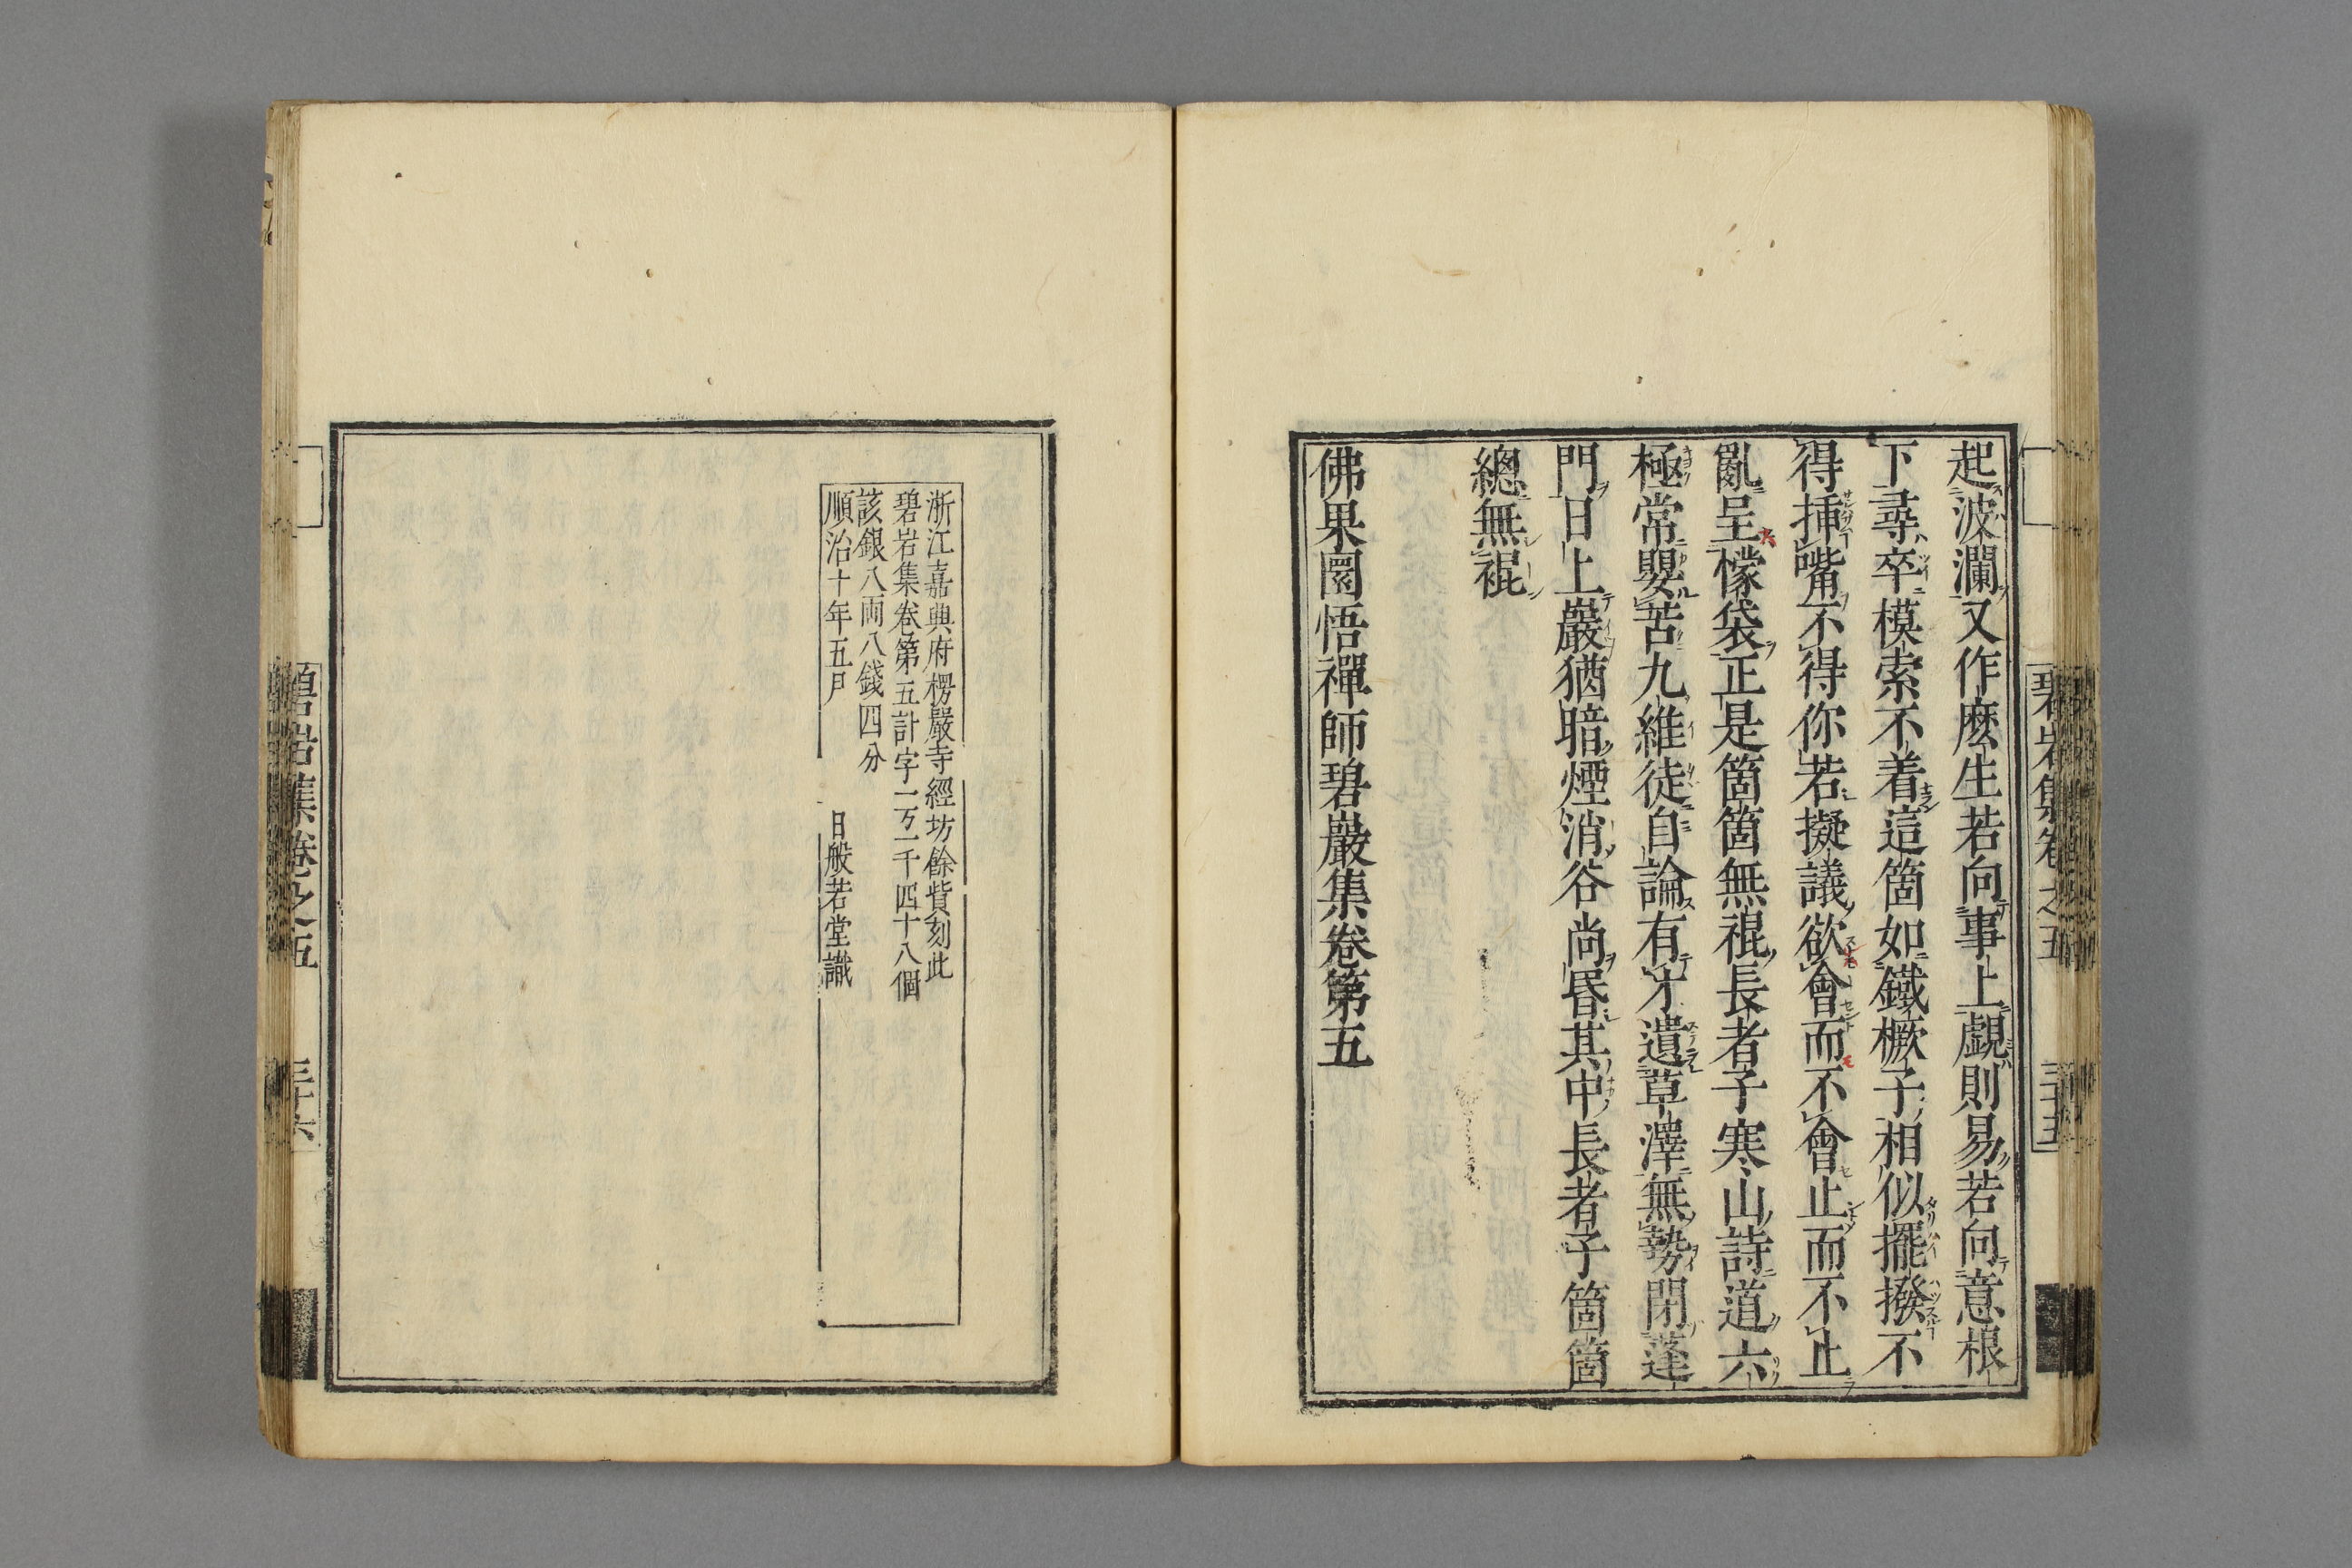 碧岩集卷之五
三十五
起波瀾又作麽生若向事上覷則易若向意根
下尋卒模索不着這箇如鐵橛子相似擺撥不
得挿嘴不得你若擬議欲會而不會止而不止
亂呈懞袋正是箇箇無裩長者子寒山詩道六
極常嬰苦九維徒自論有才遺草澤無勢閉蓬
門日上巖猶暗煙消谷尚昏其中長者子箇箇
總無裩
佛果圜悟禪師碧巖集卷第五
浙江嘉興府楞嚴寺經坊餘貲刻此
碧岩集卷第五計字一万一千四十八個
該銀八両八錢四分
順治十年五月 日般若堂識
碧岩集卷之五
三十六